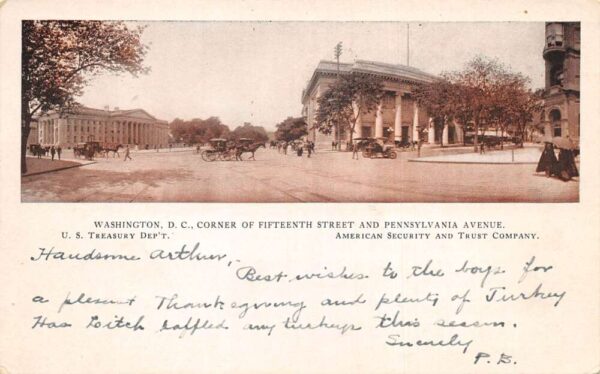 WASHINGTON, D. C., CORNER OF FIFTEENTH STREET AND PENNSYLVANIA AVENUE.
U. S. TREASURY DEP'T. AMERICAN SECURITY AND TRUST COMPANY.
Handsome Arthur,
Best wishes to the boys for
a plesent Thanksgiving and plenty of Turkey
Has Leitch raffled any turkeys this season.
Sincerely
P. B.